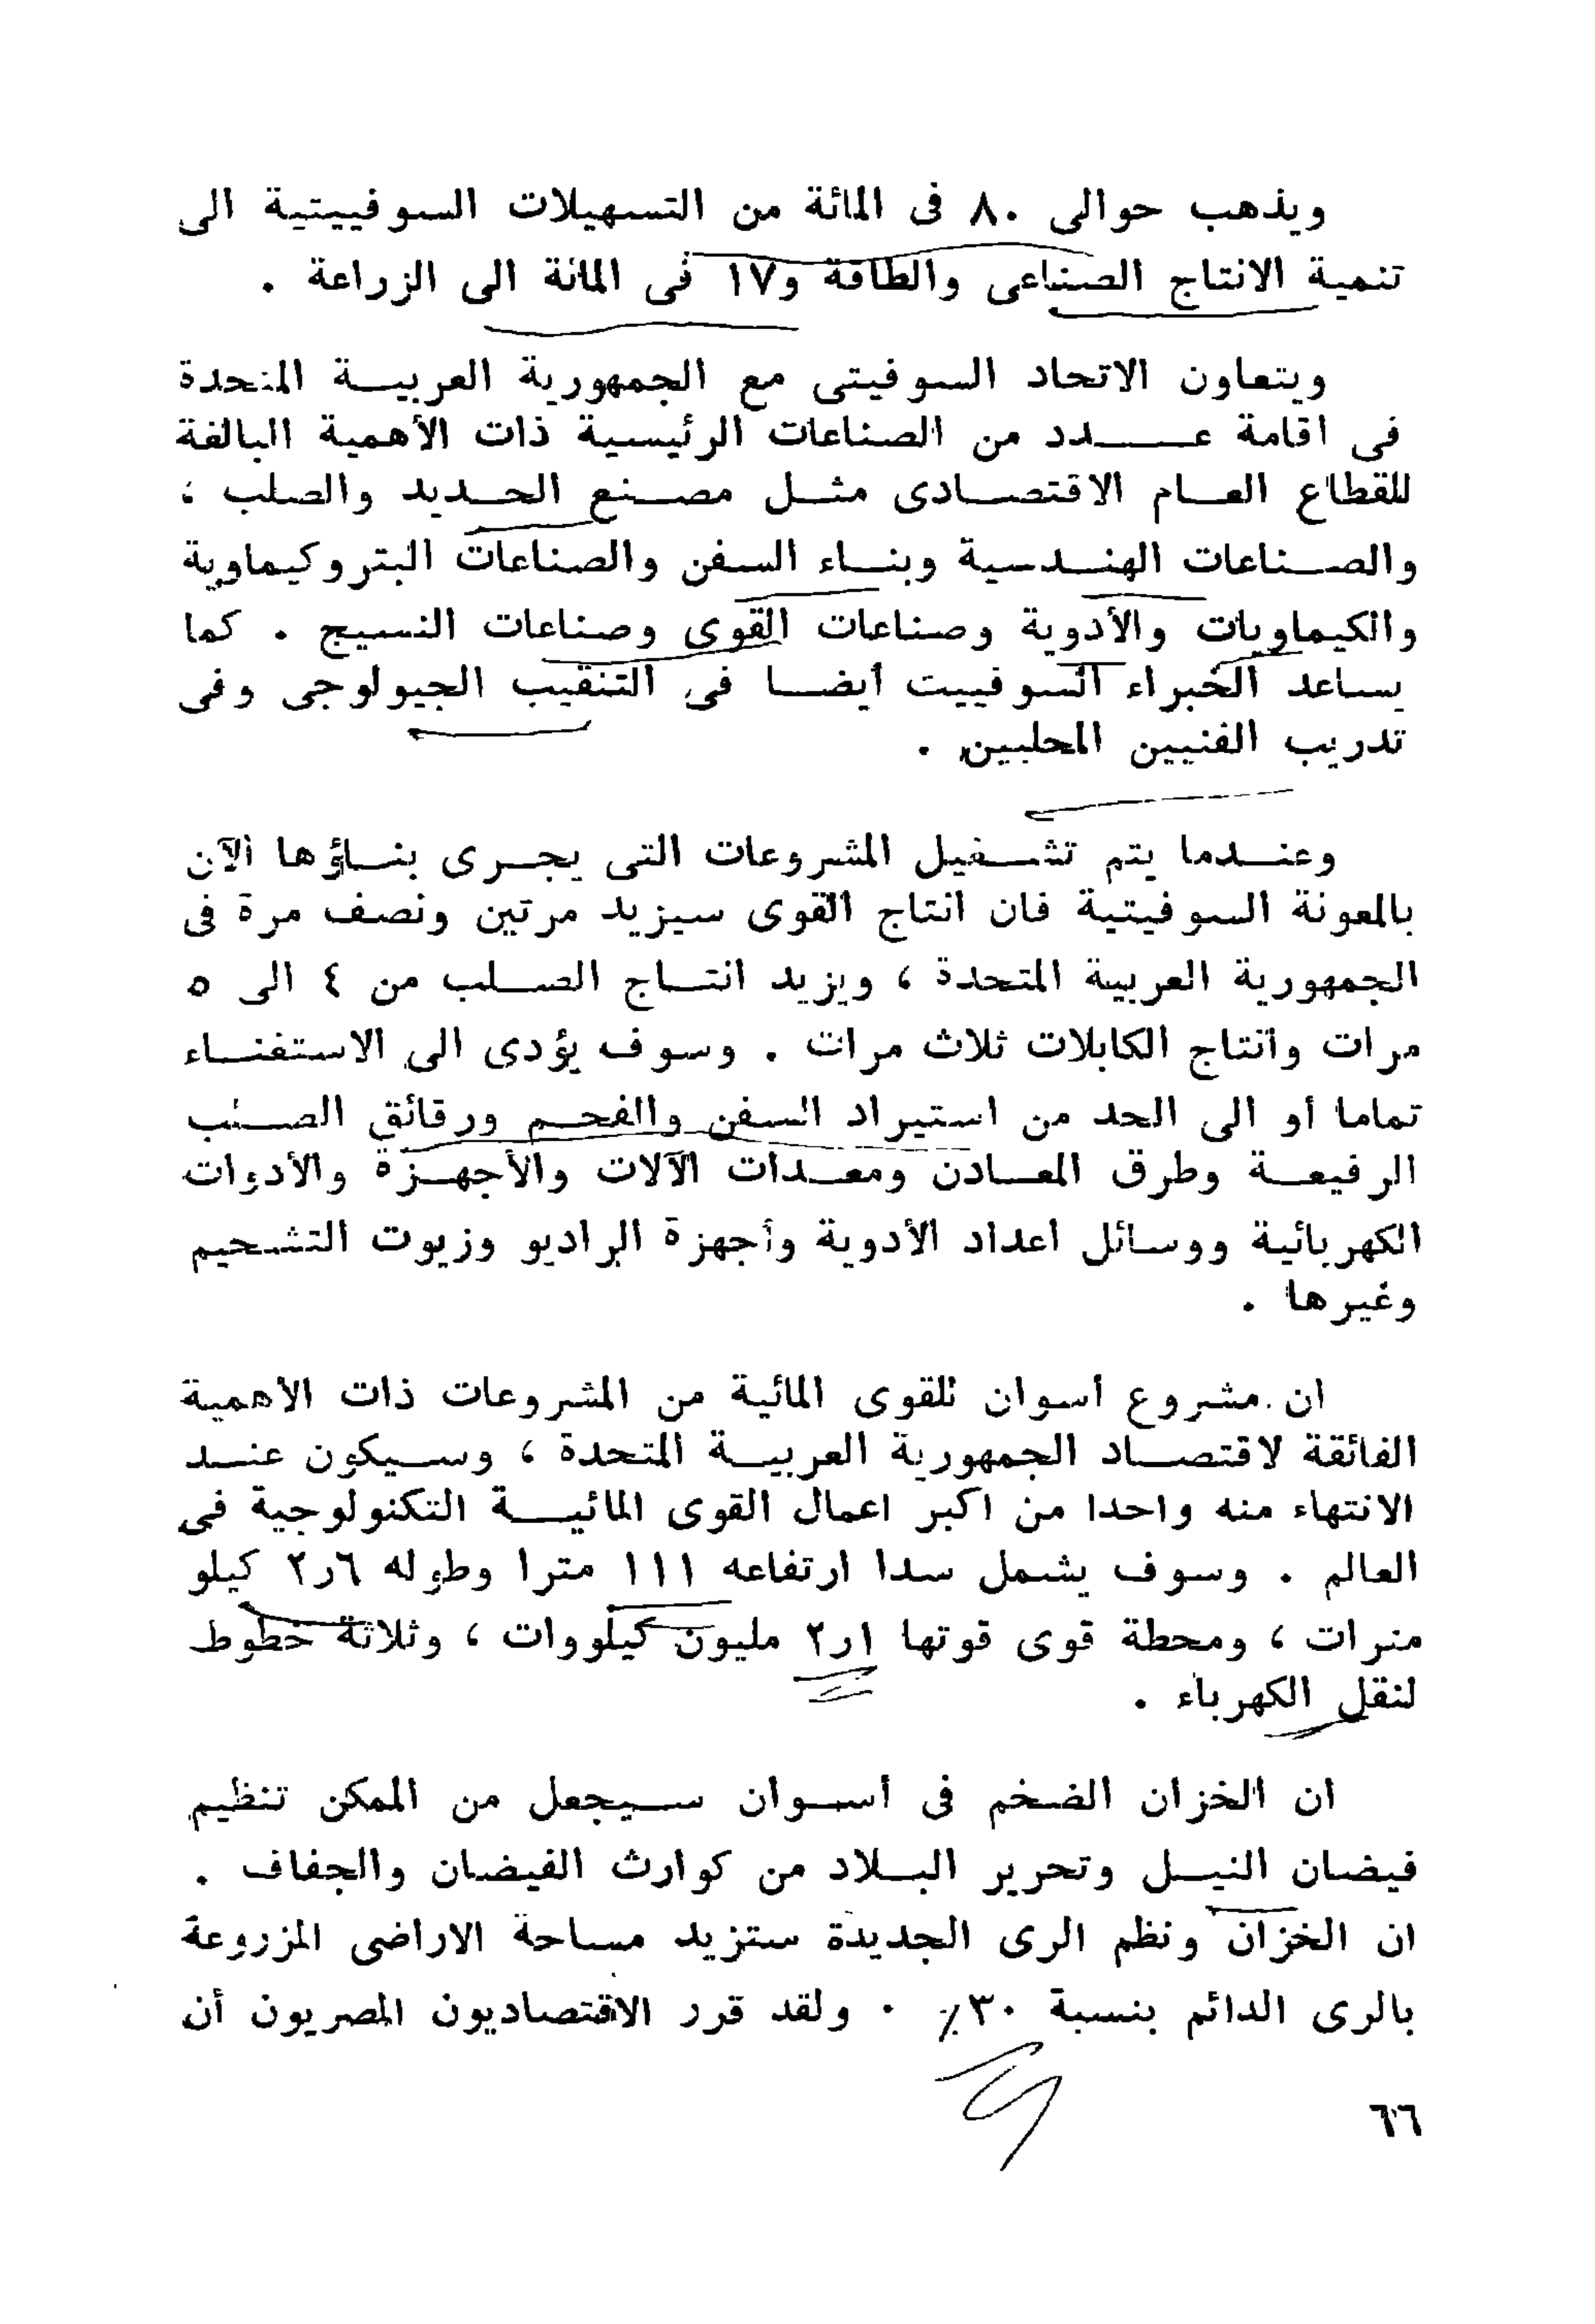 ويذهب حوالى ٨٠ فى المائة من التسهيلات السوفييتية الى
تنمية الانتاج الصناعى والطاقة و١٧ فى المائة الى الزراعة .
ويتعاون الاتحاد السوفيتى مع الجمهورية العربيـــة المتحدة
فى اقامة عـــــدد من الصناعات الرئيسية ذات الأهمية البالغة
للقطاع العـــام الاقتصـــادى مثـــل مصـــنع الحـــديد والصلب ،
والصـــناعات الهنـــدسية وبنـــاء السفن والصناعات البتروكيماوية
والكيماويات والأدوية وصناعات القوى وصناعات النسيج . كما
يساعد الخبراء السوفييت أيضـــا فى التنقيب الجيولوجى وفى
تدريب الفنيين المحليين .
وعنـــدما يتم تشـــغيل المشروعات التى يجـــرى بنـــاؤها الآن
بالمعونة السوفيتية فان انتاج القوى سيزيد مرتين ونصف مرة فى
الجمهورية العربية المتحدة ، ويزيد انتـــاج الصـــلب من ٤ الى ٥
مرات وانتاج الكابلات ثلاث مرات . وسوف يؤدى الى الاستغنـــاء
تماما أو الى الحد من استيراد السفن والفحـــم ورقائق الصـــلب
الرفيعـــة وطرق المعـــادن ومعـــدات الآلات والأجهـــزة والأدوات
الكهربائية ووسائل اعداد الأدوية وأجهزة الراديو وزيوت التشحيم
وغيرها .
ان مشروع أسوان للقوى المائية من المشروعات ذات الأهمية
الفائقة لاقتصـــاد الجمهورية العربيـــة المتحدة ، وســـيكون عنـــد
الانتهاء منه واحدا من اكبر اعمال القوى المائيـــة التكنولوجية فى
العالم . وسوف يشمل سدا ارتفاعه ١١١ مترا وطوله ٦ر٢ كيلو
مترات ، ومحطة قوى قوتها ١ر٢ مليون كيلووات ، وثلاثة خطوط
لنقل الكهرباء .
ان الخزان الضخم فى أســـوان ســـيجعل من الممكن تنظيم
فيضان النيـــل وتحرير البـــلاد من كوارث الفيضان والجفاف .
ان الخزان ونظم الرى الجديدة ستزيد مساحة الاراضى المزروعة
بالرى الدائم بنسبة ٣٠٪ . ولقد قرر الاقتصاديون المصريون أن
٦٦